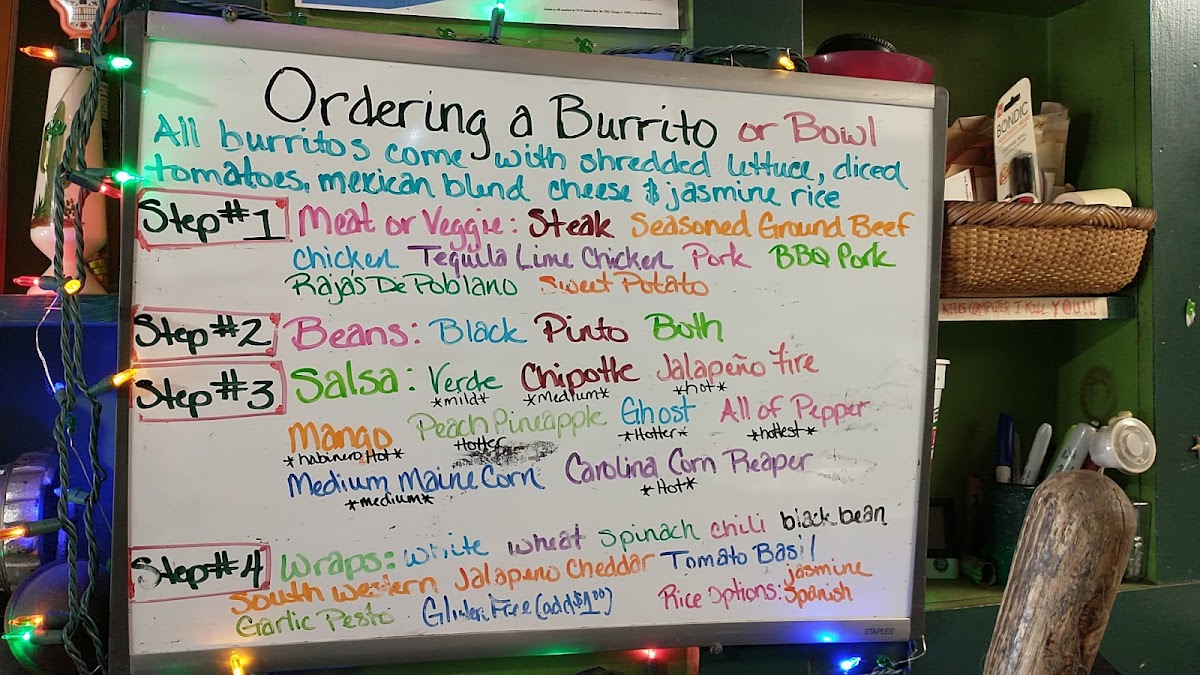 Ordering a Burrito or Bowl
All burritos come with shredded lettuce, diced
tomatoes, mexican blend cheese & jasmine rice
Step #1 Meat or Veggie: Steak Seasoned Ground Beef
Chicken Tequila Lime Chicken Pork BBQ Pork
Rajas De Poblano Sweet Potato
Step #2 Beans: Black Pinto Both
Step #3 Salsa: Verde Chipotle Jalapeño Fire
*mild* *medium* *hot*
Mango Peach Pineapple Ghost All of Pepper
*habinero Hot* Hotter *Hotter* *hottest*
Medium Maine Corn Carolina Corn Reaper
*medium* *Hot*
Step #4 Wraps: white wheat spinach chili black bean
South western Jalapeno Cheddar Tomato Basil
Garlic Pesto Gluten Free (add $1.00) Rice Options: jasmine
Spanish
STAPLES
BONDIC
COMPUTER I KILL YOU!!!